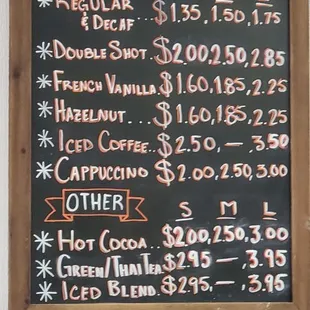 * REGULAR
& DECAF $1.35, 1.50, 1.75
* DOUBLE SHOT. $2.00, 2.50, 2.85
* FRENCH VANILLA $1.60, 1.85, 2.25
* HAZELNUT... $1.60, 1.85, 2.25
* ICED COFFEE.. $2.50, — , 3.50
* CAPPUCCINO $2.00, 2.50, 3.00
OTHER S M L
* HOT COCOA.. $2.00, 2.50, 3.00
* GREEN/THAI TEA $2.95 — , 3.95
* ICED BLEND. $2.95, — , 3.95